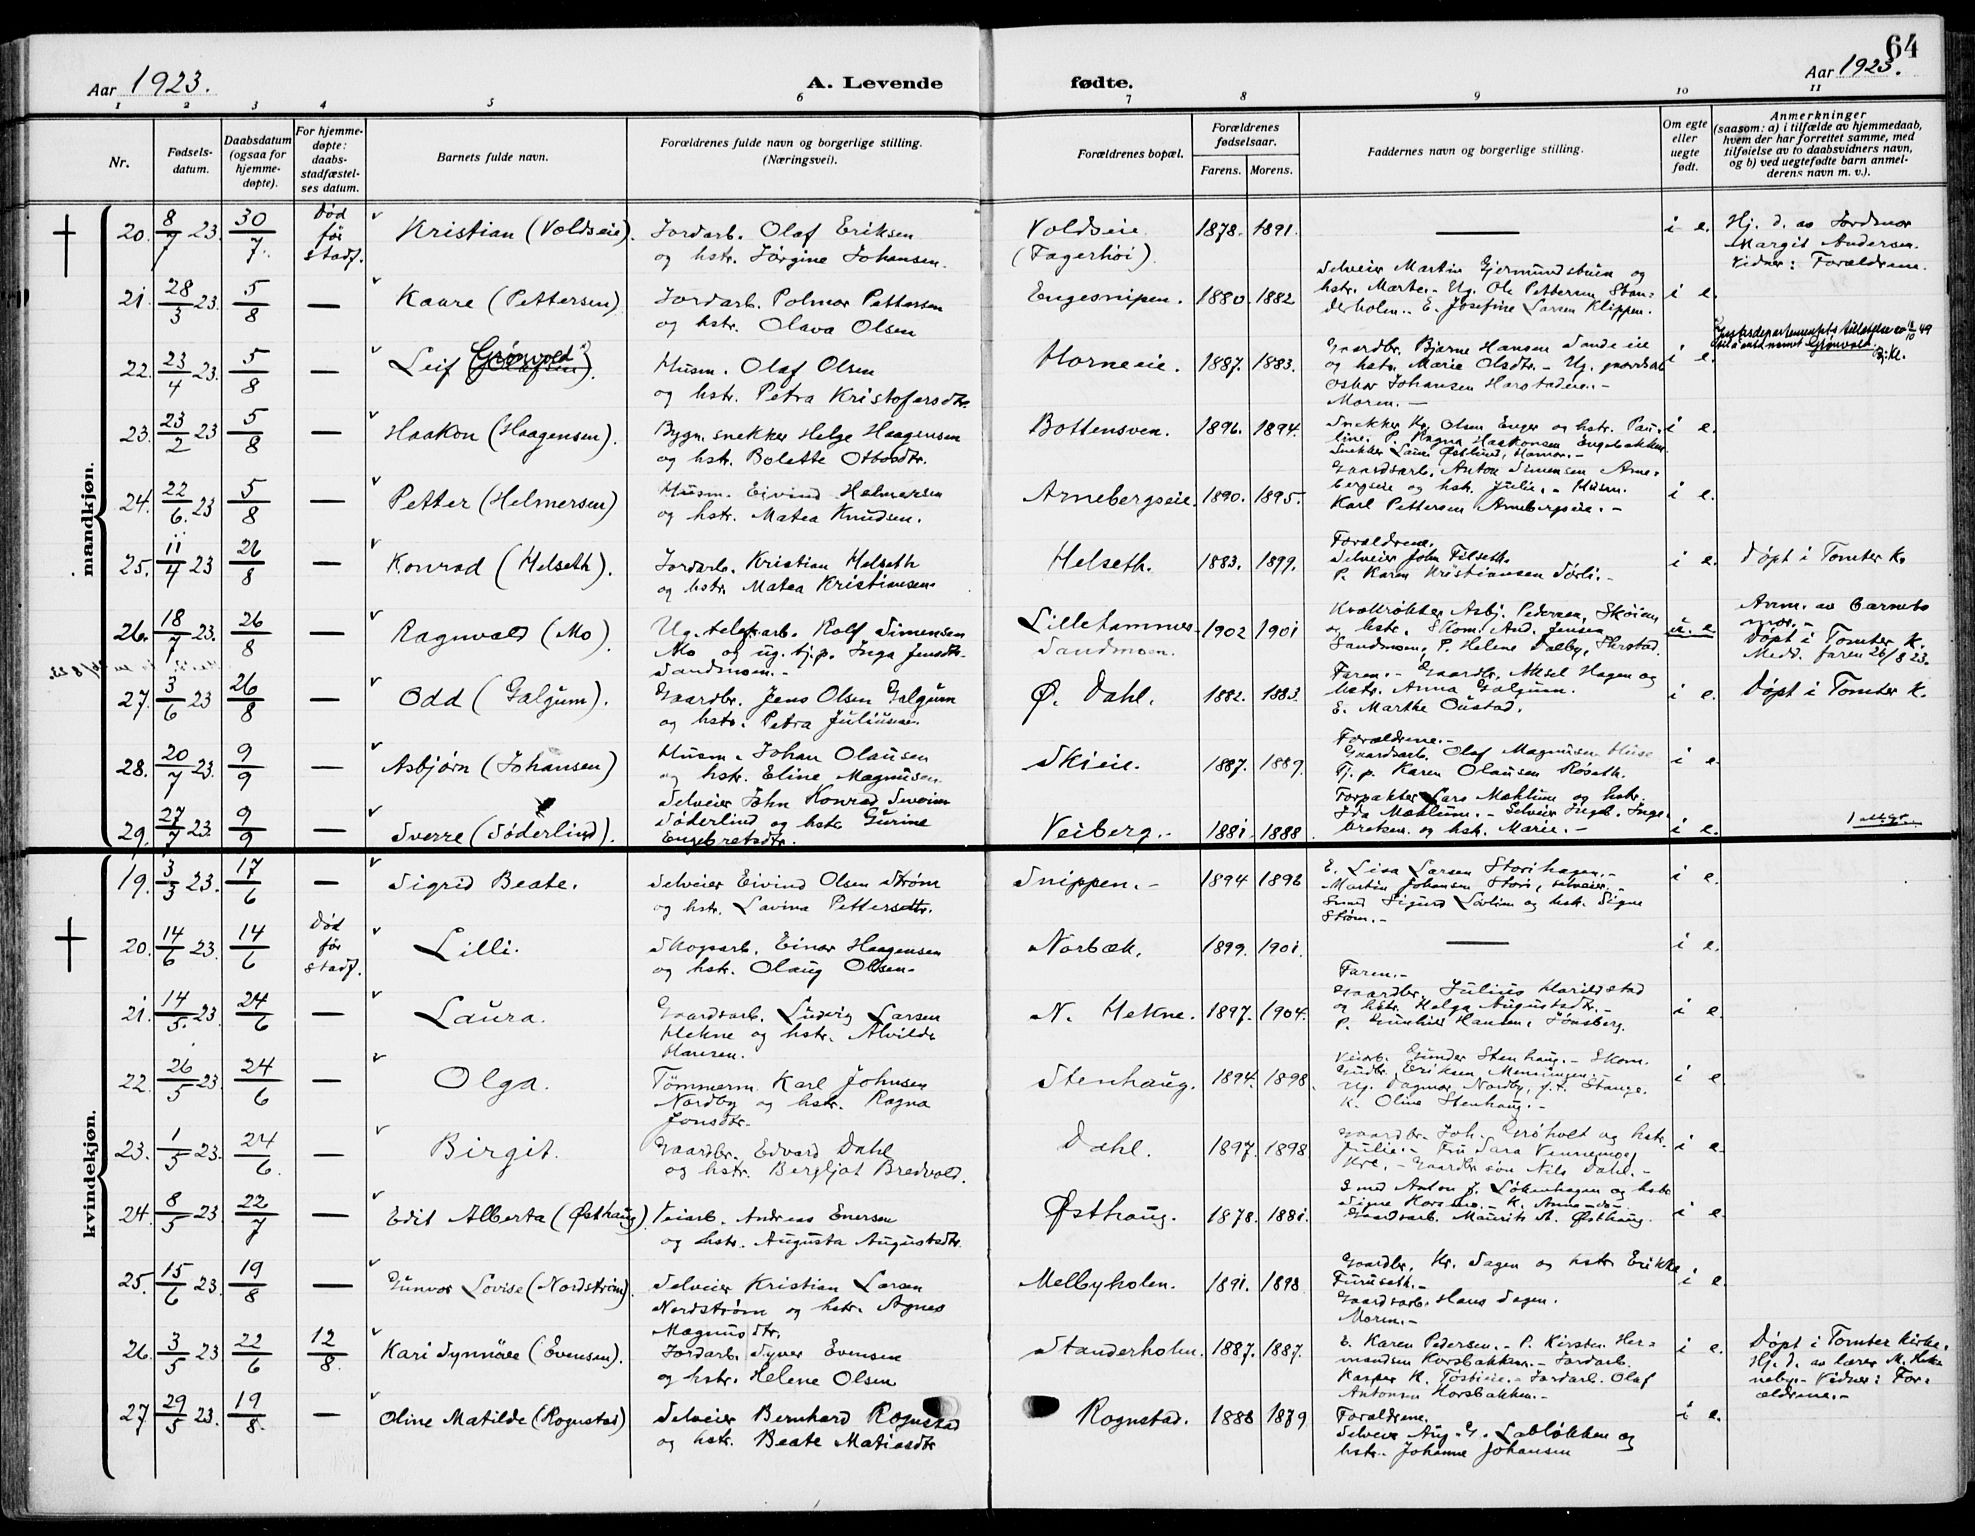 64
Aar 1923.
A. Levende fødte.
Aar 1923.
1 2 3 4 5 6 7 8 9 10 11
Nr.
Fødsels-
datum.
Daabsdatum
(ogsaa for
hjemme-
døpte).
For hjemme-
døpte:
daabs-
stadfæstel-
ses datum.
Barnets fulde navn.
Forældrenes fulde navn og borgerlige stilling.
(Næringsvei).
Forældrenes bopæl.
Forældrenes
fødselsaar.
Farens. Morens.
Faddernes navn og borgerlige stilling.
Om egte
eller
uegte
født.
Anmerkninger
(saasom: a) i tilfælde av hjemmedaab,
hvem der har forrettet samme, med
tilføielse av to daabsvidners navn,
og b) ved uegtefødte barn anmel-
derens navn m. v.).
mandkjøn.
20. 8/7 23. 30/7. Død
før
stadf.
Kristian (Voldseie).
Jordarb. Olaf Eriksen
og hstr. Jørgine Johansen.
Voldseie
(Fagerhøi).
1878. 1891. — i e.
Hj. d. av Jordmor
Margit Andersen.
Vidner: Forældrene.
21. 28/3 23. 5/8 — Kaare (Pettersen).
Jordarb. Polmar Pettersen
og hstr. Olava Olsen
Engesnipen. 1880. 1882
Selveier Martin Gjermundstuen og
hstr. Marte. - Ug. Ole Pettersen Stan-
derholen. - E. Josefine Larsen Klippen.
i e.
22. 23/4 23. 5/8 — Leif Grønvold (Olafsen).
Husm. Olaf Olsen
og hstr. Petra Kristofersdtr.
Horneeie. 1887. 1883.
Gaardbr. Bjarne Hansen Sandeeie
og hstr. Marie Olsdtr. - Ug. gaardsarb
Oskar Johansen
Moren. -
i e.
Justisdepartementets tillatelse
til å anta navnet Grønvold.
23. 23/2 23 5/8 — Haakon (Haagensen).
Bygn. snekker Helge Haagensen
og hstr. Bolette Ottosdtr.
Bottensven. 1896. 1894.
Snekker Kr. Olsen Enger og hstr. Pau-
line. P. Ragna Haakonsen Engebakken
Snekker Laur. Østlund, Hamar. -
i e.
24. 22/6. 23 5/8 — Petter (Helmersen)
Husm. Eivind Helmersen
og hstr. Matea Knudsen.
Arnebergseie. 1890. 1895.
Gaardsarb. Anton Simensen Arne-
bergseie og hstr. Julie. - Husm.
Karl Pettersen Arnebergseie. -
i e.
25. 11/4 23 26/8 — Konrad (Helseth).
Jordarb. Kristian Helseth
og hstr. Matea Kristiansen.
Helseth. 1883. 1899.
Forældrene.
Selveier John Filseth.
P. Karen Kristiansen Sørli. -
i e.
Døpt i Tomter K.
26. 18/7 23. 26/8 — Ragnvald (Mo)
Ug. telefarb. Rolf Simensen
Mo og ug. tj.p. Inga Jensdtr.
Sandmoen. -
Lillehammer
Sandmoen.
1902 1901
Asbj. Pedersen, Skøien
og hstr. Skom. And. Jensen
Sandmoen, P. Helene Dalby,
u. e.
Anm. av barnets
mor. -
Døpt i Tomter K.
Medd. faren 26/8 23.
27. 3/6 23 26/8 — Odd (Galgum).
Gaardbr. Jens Olsen Galgum
og hstr. Petra Juliussen
Ø. Dahl. 1882. 1883.
Faren. - Gaardbr. Aksel Hagen og
hstr. Anna Galgum.
E. Marthe Oustad.
i e.
Døpt i Tomter K.
28. 20/7 23. 9/9 — Asbjørn (Johansen)
Husm. Johan Olausen
og hstr. Eline Magnusen.
Skieie. 1887. 1889.
Forældrene. -
Gaardsarb. Olaf Magnusen Huse
Tj. p. Karen Olausen Røseth.
i e.
29. 27/7 23. 9/9 — Sverre (Söderlind).
Selveier John Konrad Severin
Söderlind og hstr. Gurine
Engebretsdtr.
Veiberg. - 1881. 1888.
Forpakter Lars Mæhlum og hstr.
Ida Mæhlum. - Selveier Ingeb. Inge-
bretsen og hstr. Marie. -
i e.
kvindekjøn.
19. 3/3 23. 17/6 — Sigrid Beate.
Selveier Eivind Olsen Strøm
og hstr. Lavina Pettersdtr.
Snippen. - 1894 1896
E. Lisa Larsen Storihagen. -
Martin Johansen Stori, selveier. -
Smed Sigurd Løvlien og hstr. Signe
Strøm. -
i e.
20. 14/6 23. 14/6 Død
før
stadf.
Lilli.
Skogsarb. Einar Haagensen
og hstr. Olaug Olsen.
Norbæk. 1899. 1901. — i e.
21. 14/5. 23. 24/6 — Laura.
Gaardsarb. Ludvig Larsen
Hekne og hstr. Alvilde
Hansen.
N. Hekne. 1897. 1904.
Faren. -
Gaardbr. Julius Harildstad
og hstr. Helga Augustsdtr. -
P. Gunhild Hansen, Jønsberg.
i e.
22. 26/5 23 24/6 — Olga.
Tømmerm. Karl Johnsen
Nordby og hstr. Ragna
Jonsdtr.
Stenhaug. 1894. 1898.
Veiarb. Gunder Stenhaug. - Skom.
Gudbr. Eriksen Menningen. -
Ug. Dagmar Nordby, f.t. Stange.
K. Oline Stenhaug. -
i e.
23. 1/5 23. 24/6. — Birgit.
Gaardbr. Edvard Dahl
og hstr. Bergljot Bredvold.
Dahl. 1897. 1898
Gaardbr. Joh. Grøholt og hstr.
Julie. - Fru Sara Vennemoe
Krl. - Gaardbr. søn Nils Dahl. -
i e.
24. 8/5 23. 22/7 — Edit Alberta (Østhaug).
Veiarb. Andreas Enersen
og hstr. Augusta Augustsdtr.
Østhaug. 1878. 1881.
Smed Anton J. Løkenhagen og hstr
Signe Korsmo. - K. Anna
Gaardsarb. Maurits A. Østhaug.
i e.
25. 15/6 23. 19/8 — Gunvor Lovise (Nordstrøm).
Selveier Kristian Larsen
Nordstrøm og hstr. Agnes
Magnusdtr.
Melbyholen. 1891. 1898
Gaardbr. Kr. Sagen og hstr. Erikka
Furuseth. -
Gaardsarb. Hans Sagen.
Moren. -
i e.
26. 3/5 23 22/6 12/8. Kari Synnöve (Evensen).
Jordarb. Syver Evensen
og hstr. Helene Olsen
Standerholen. 1887. 1887.
E. Karen Pedersen. - P. Kirsten Her-
mandsen Korsbakken. - Jordarb.
Kasper H. Tøstieie. - Jordarb. Olaf
Antonsen Korsbakken. -
i e.
Døpt i Tomter kirke.
Hj. d. av lærer M. Hek-
neby. - Vidner: For-
ældrene. -
27. 29/5 23. 19/8. — Oline Matilde (Rognstad)
Selveier Bernhard Rognstad
og hstr. Beate Matiasdtr
Rognstad. 1888 1879
Forældrene.
Selveier Aug. G. Labløkken og
hstr. Johanne Johansen
i e.